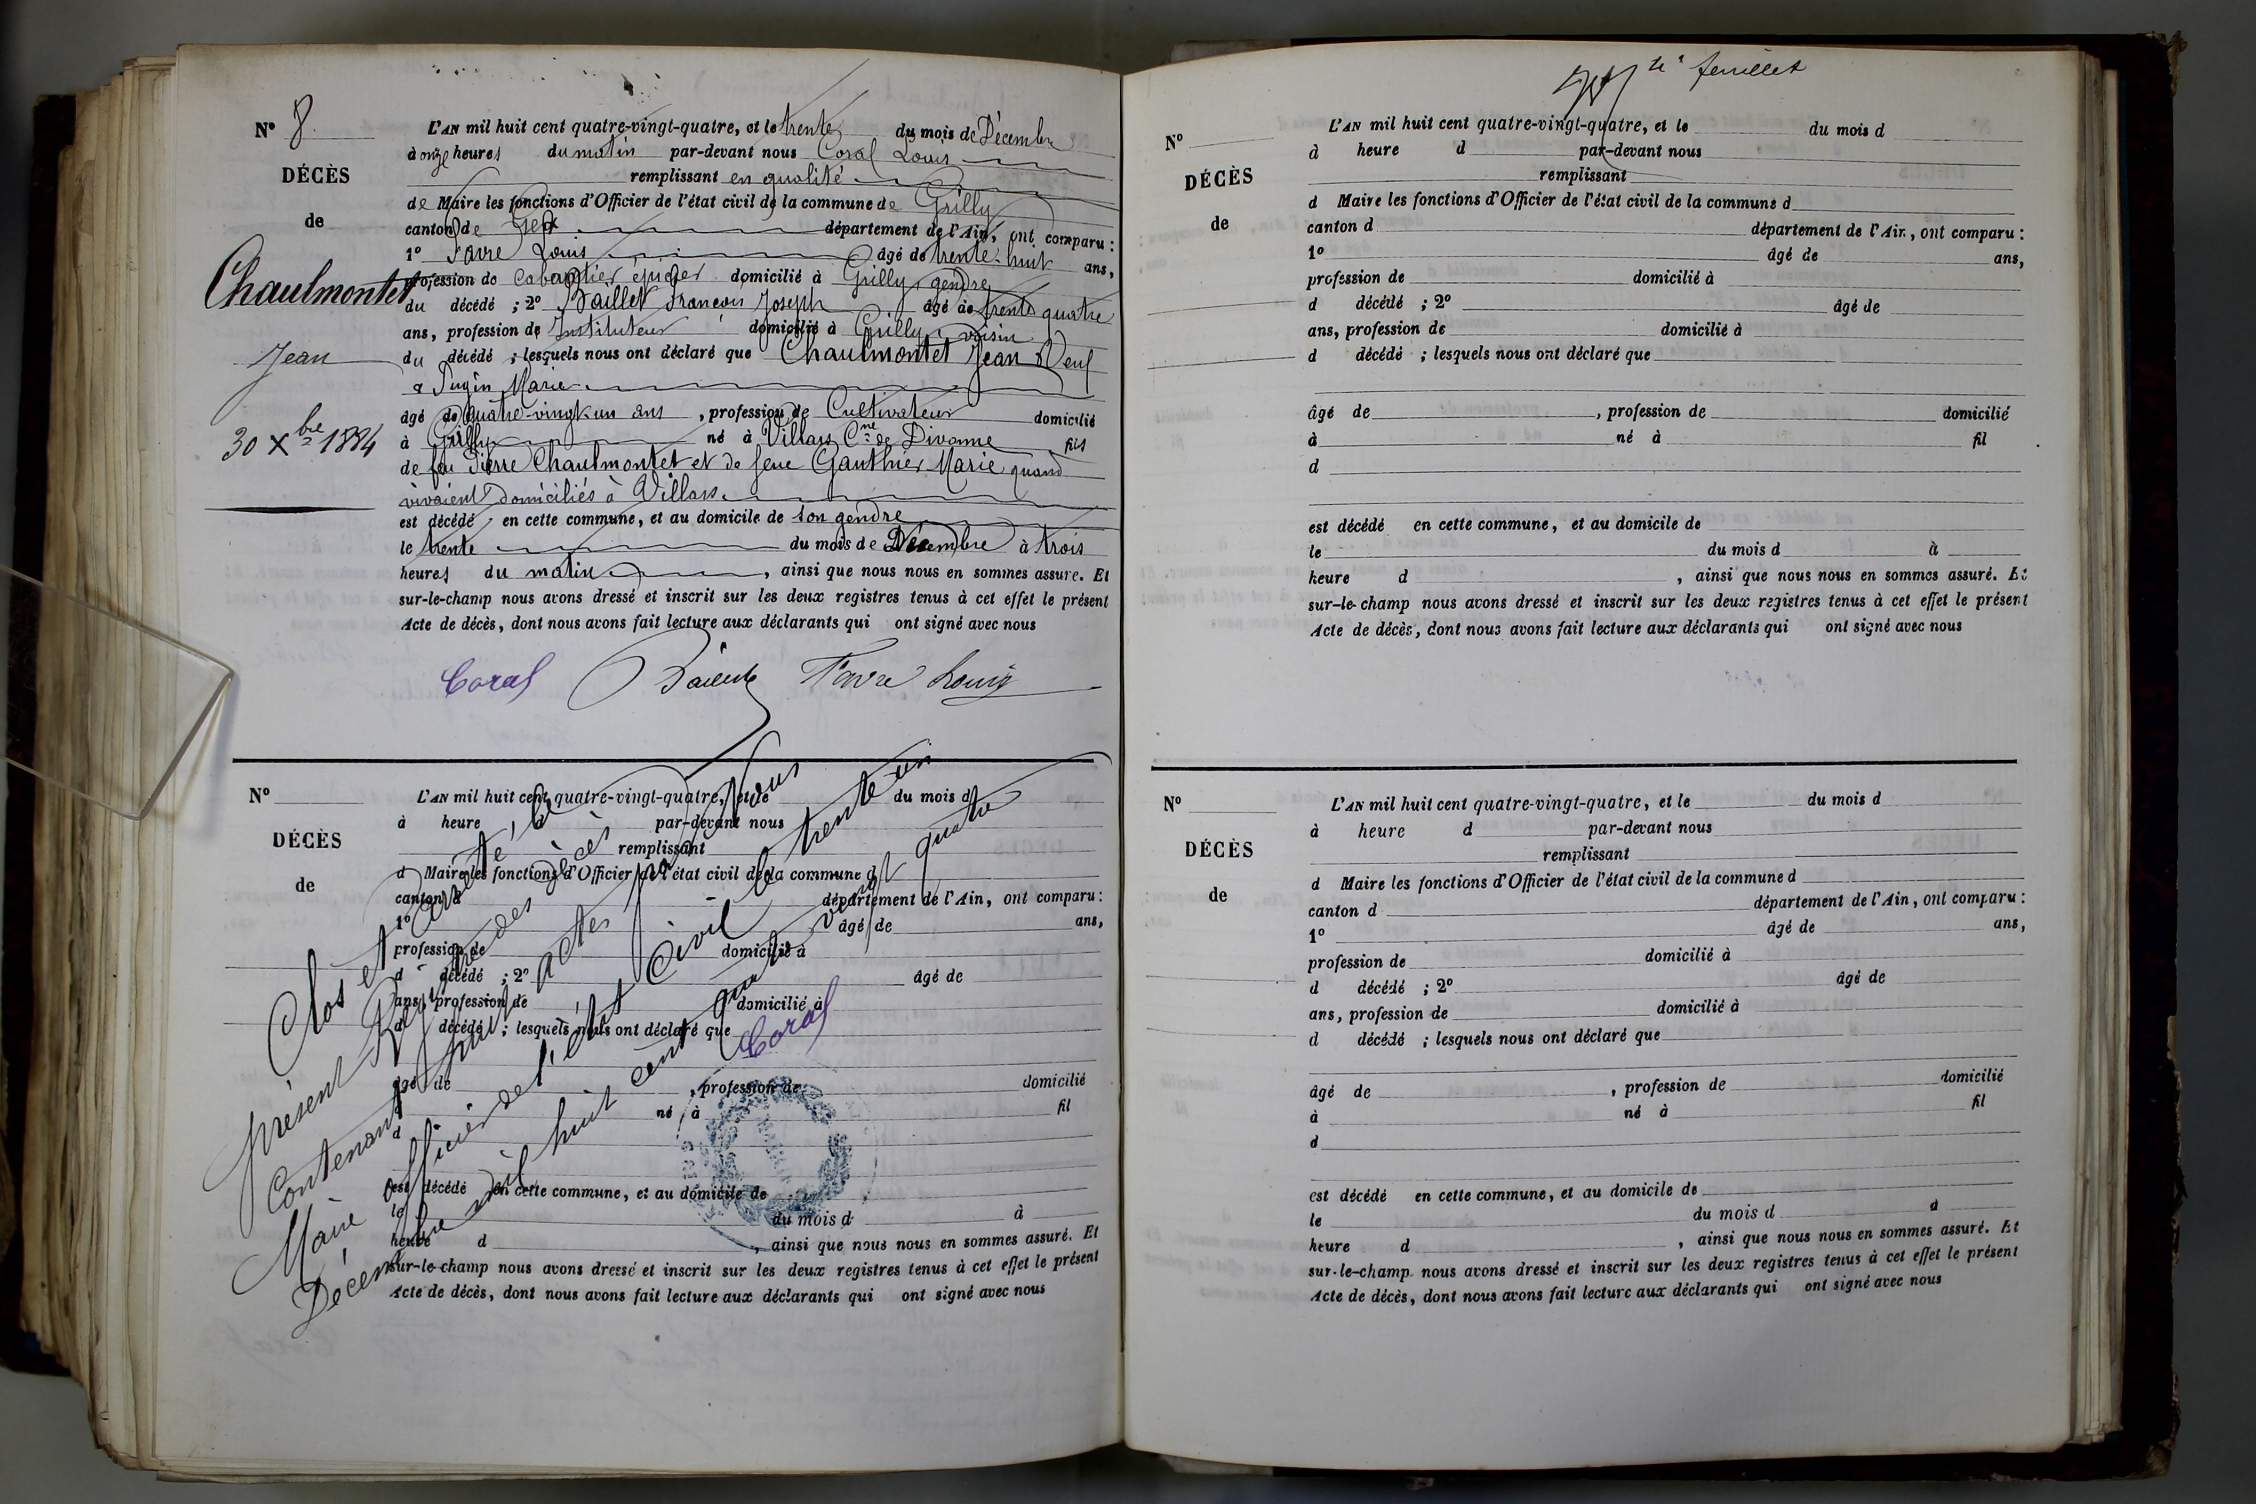 N° 8.
DÉCÈS
de
Chaulmontet
Jean
30 Xbre 1884
L'AN mil huit cent quatre-vingt-quatre, et le trente du mois de Décembre
à onze heures du matin par-devant nous Coral Louis
remplissant en qualité
de Maire les fonctions d'Officier de l'état civil de la commune de Grilly
canton de Gex département de l'Ain, ont comparu :
1° Favre Louis âgé de trente-huit ans,
profession de Cabaretier épicier domicilié à Grilly, gendre
du décédé ; 2° François Joseph âgé de trente quatre
ans, profession de Instituteur domicilié à Grilly, voisin
du décédé ; lesquels nous ont déclaré que Chaulmontet Jean Veuf
Marie
âgé de quatre-vingt-un ans, profession de Cultivateur domicilié
à Grilly né à Villars Cne de Divonne fils
de feu Pierre Chaulmontet et de feue Gauthier Marie quand
vivaient domiciliés à Villars.
est décédé en cette commune, et au domicile de son gendre
le trente du mois de Décembre à trois
heures du matin, ainsi que nous nous en sommes assuré. Et
sur-le-champ nous avons dressé et inscrit sur les deux registres tenus à cet effet le présent
Acte de décès, dont nous avons fait lecture aux déclarants qui ont signé avec nous
Coral Favre Louis
N°
DÉCÈS
de
L'AN mil huit cent quatre-vingt-quatre, et le du mois d
à heure d par-devant nous
remplissant
d Maire les fonctions d'Officier de l'état civil de la commune d
canton d département de l'Ain, ont comparu :
1° âgé de ans,
profession de domicilié à
d décédé ; 2° âgé de
ans, profession de domicilié à
d décédé ; lesquels nous ont déclaré que
âgé de , profession de domicilié
à né à fil
d
est décédé en cette commune, et au domicile de
le du mois d à
heure d , ainsi que nous nous en sommes assuré. Et
sur-le-champ nous avons dressé et inscrit sur les deux registres tenus à cet effet le présent
Acte de décès, dont nous avons fait lecture aux déclarants qui ont signé avec nous
Clos et arrêté, le
présent Registre des décès
Contenant huit actes par Nous
Maire officier de l'état Civil le trente un
Décembre mil huit cent quatre vingt quatre
Coral
feuillet
N°
DÉCÈS
de
L'AN mil huit cent quatre-vingt-quatre, et le du mois d
à heure d par-devant nous
remplissant
d Maire les fonctions d'Officier de l'état civil de la commune d
canton d département de l'Ain, ont comparu :
1° âgé de ans,
profession de domicilié à
d décédé ; 2° âgé de
ans, profession de domicilié à
d décédé ; lesquels nous ont déclaré que
âgé de , profession de domicilié
à né à fil
d
est décédé en cette commune, et au domicile de
le du mois d à
heure d , ainsi que nous nous en sommes assuré. Et
sur-le-champ nous avons dressé et inscrit sur les deux registres tenus à cet effet le présent
Acte de décès, dont nous avons fait lecture aux déclarants qui ont signé avec nous
N°
DÉCÈS
de
L'AN mil huit cent quatre-vingt-quatre, et le du mois d
à heure d par-devant nous
remplissant
d Maire les fonctions d'Officier de l'état civil de la commune d
canton d département de l'Ain, ont comparu :
1° âgé de ans,
profession de domicilié à
d décédé ; 2° âgé de
ans, profession de domicilié à
d décédé ; lesquels nous ont déclaré que
âgé de , profession de domicilié
à né à fil
d
est décédé en cette commune, et au domicile de
le du mois d à
heure d , ainsi que nous nous en sommes assuré. Et
sur-le-champ nous avons dressé et inscrit sur les deux registres tenus à cet effet le présent
Acte de décès, dont nous avons fait lecture aux déclarants qui ont signé avec nous